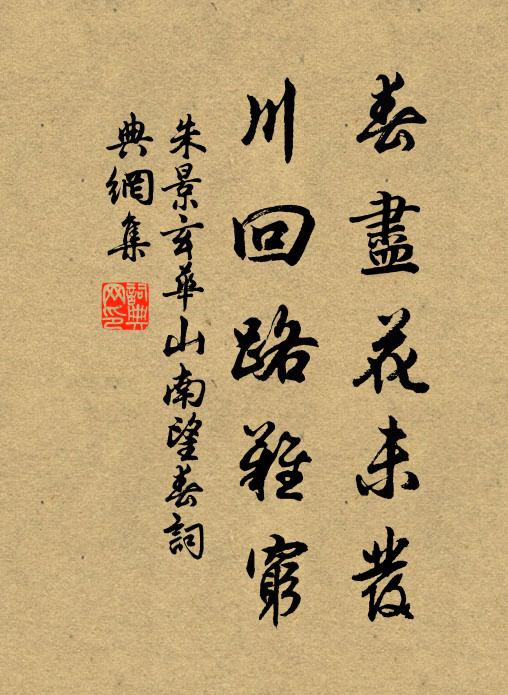 春盡花未發
川回路難窮
朱景玄華山南望春詞
典網集
詞典網印